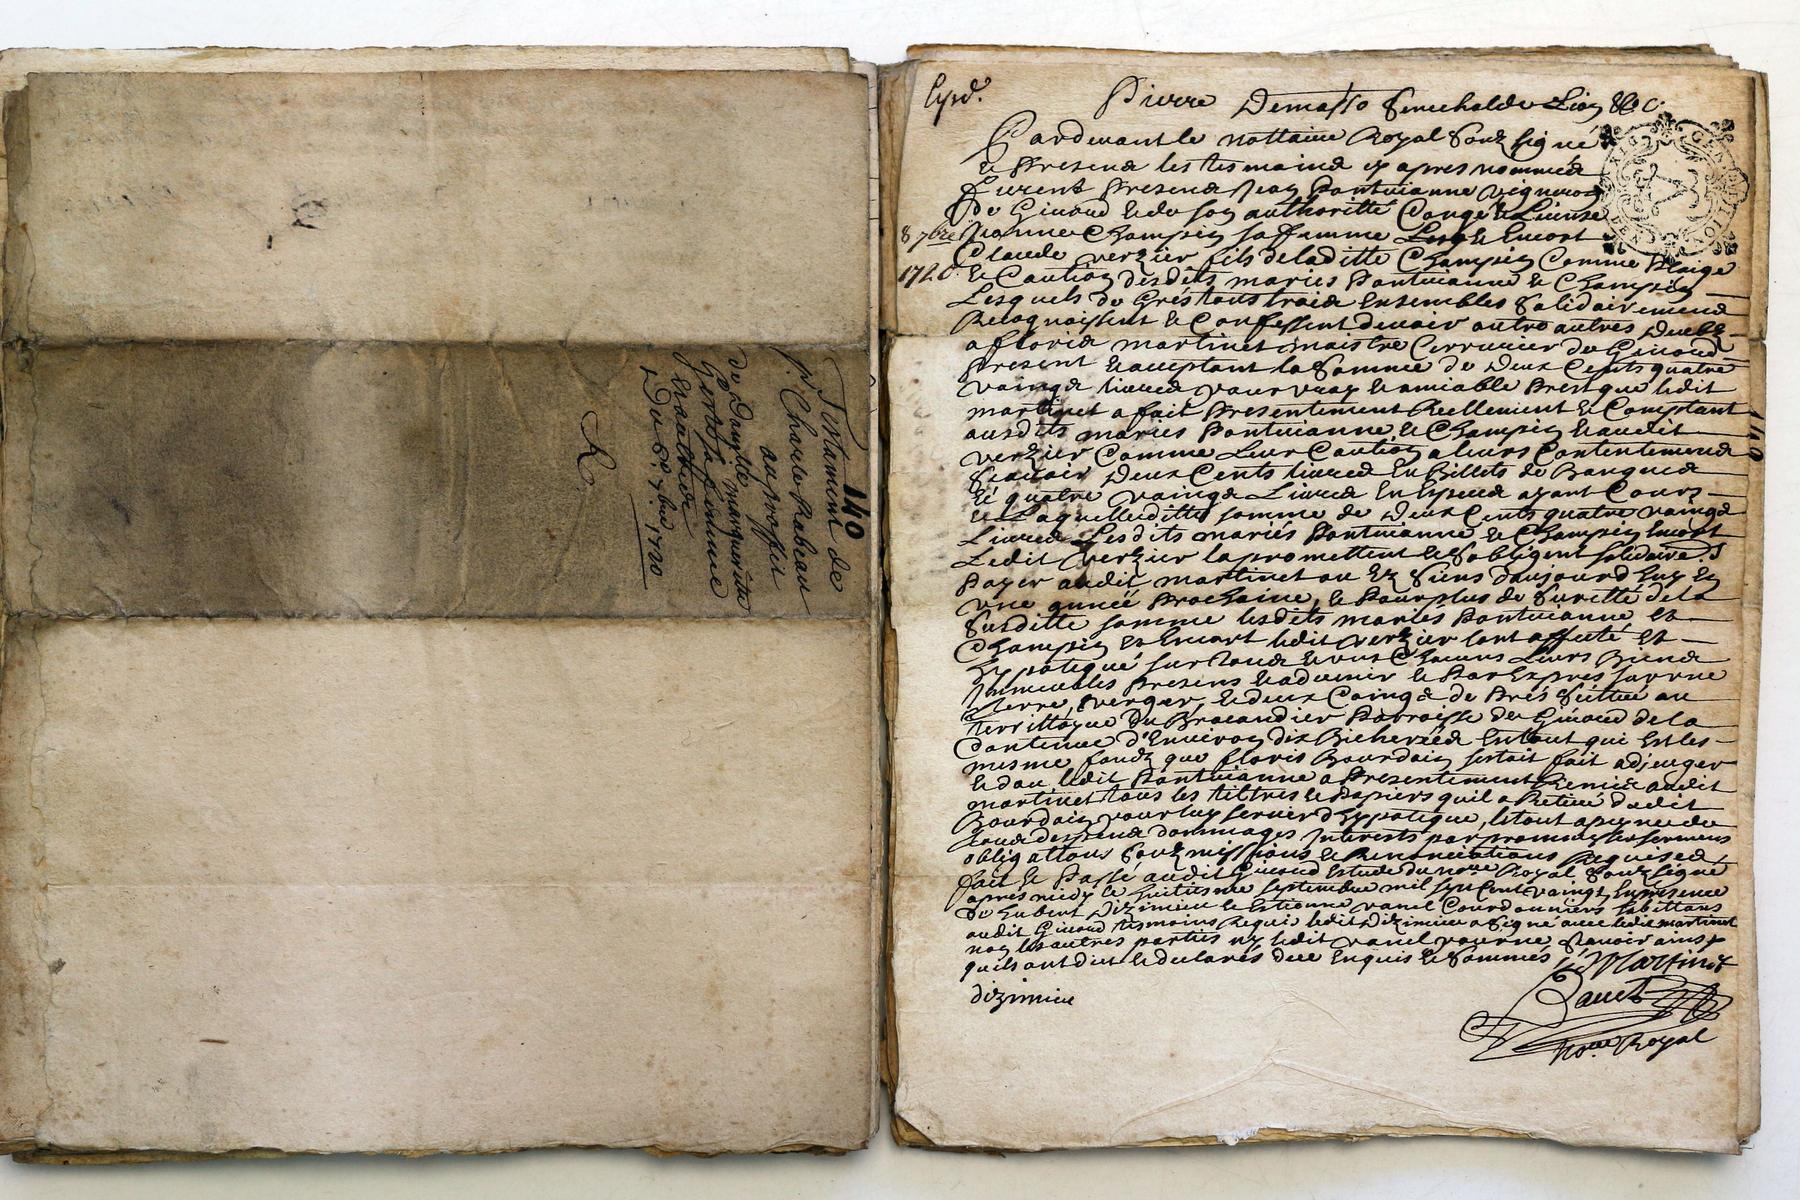 140
Testament de
Sr. Charle Rabeau
au proffit
de dam.lle marguerite
sa femme
Du 6e 7bre 1720
R.
Exp.d
Pierre Demasso Senechal de Lion &c.
Pardevant le nottaire Royal Souz signé
& Presend les tesmoins cy apres nommés
furent Presend Jean Pontvianne vigneron
de Givord & de son authoritté Congé & License
8 7bre Jeanne Champin sa femme & Encort
Claude verzier fils de laditte Champin Comme Plaige
1720 & Caution desdits mariés Pontvianne & Champin
Lesquels de Grés tous trois Ensembles Solidairement
Recognoissent & Confessent devoir
a floris martinet maistre Cerrurier de Givord
present & acceptant la Somme de Deux Cents quatre
vaingd livred pour vray & amiable Prest que ledit
martinet a fait Presentement Reellement & Comptant
ausdits mariés Pontvianne & Champin & audit
verzier Comme Leur Caution a leurs Contentemend
Scavoir Deux Cents livred en Billets de Banque
& quatre vaingd Livred En Espece ayant Cours
& Laquelleditte somme de Deux Cents quatre vaingd
Livred Lesdits mariés Pontvianne & Champin Encort
Ledit verzier la promettent & s'obligent solidaire.t
Payer audit martinet ou Ez Siens d'aujourd huy En
une année Prochaine, & Pour plus de Suretté de la
Susditte somme lesdits mariés Pontvianne et
Champin et Encort ledit verzier ont affecté et
hypotequé sur tous & uns Chacuns Leurs Biend
Immeubles Presens & advenir & Par Exprés sur une
terre, verger, & deux Coingd de Prés Scittué au
territtoire du Brocandier Parroisse de Givord de la
Contenue d'Environ dix Bicherééd En tout qui Est les
mesme fondz que floris Bourdoin s'estoit fait adjuger
& dou ledit Pontvianne a Presentement Remis audit
martinet tous les tiltres & Papiers quil a Retiré dudit
Bourdoin pour luy servir d'hypoteque, le tout a peyne de
tous despend dommages Interests par promesses serment
obligations Souzmissions & Renonciations Requised,
fait & Passé audit Givord Estude du no.re Royal Souz signé
apres midy le huitiesme septembre mil sept Cent vaingt En presence
de hubert Dizimieu & Estienne vanel Courdonniers habittans
audit Givord tesmoins Requis ledit Dizimieu a Signé avec ledit martinet
non les autres parties ny ledit vanel pour ne Scavoir ainsy
quils ont dit & declarés de ce Enquis & Sommés
Martinet
dizimieu
no.re Royal